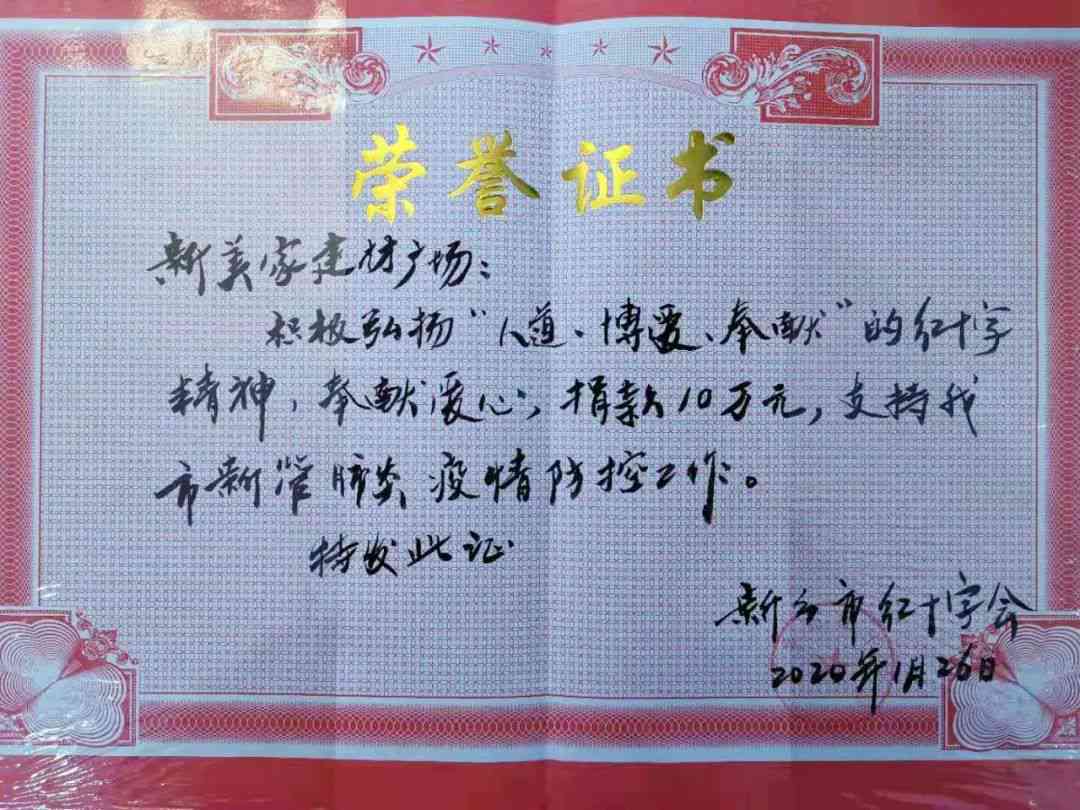 荣誉证书
新美家建材广场：
积极弘扬“人道、博爱、奉献”的红十字
精神，奉献爱心，捐款10万元，支持我
市新冠肺炎疫情防控工作。
特发此证
新乡市红十字会
2020年1月26日